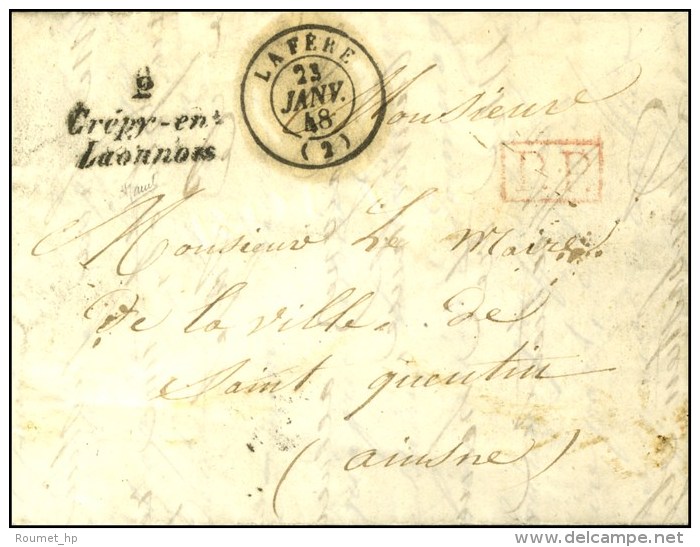 2
Crépy-en-
Laonnois
LA FÈRE
23
JANV.
48
(2)
Monsieur
P.P.
Monsieur Le Maire
De la ville de
Saint quentin
(aiusne)
Roumet_hp
©delcampe.net